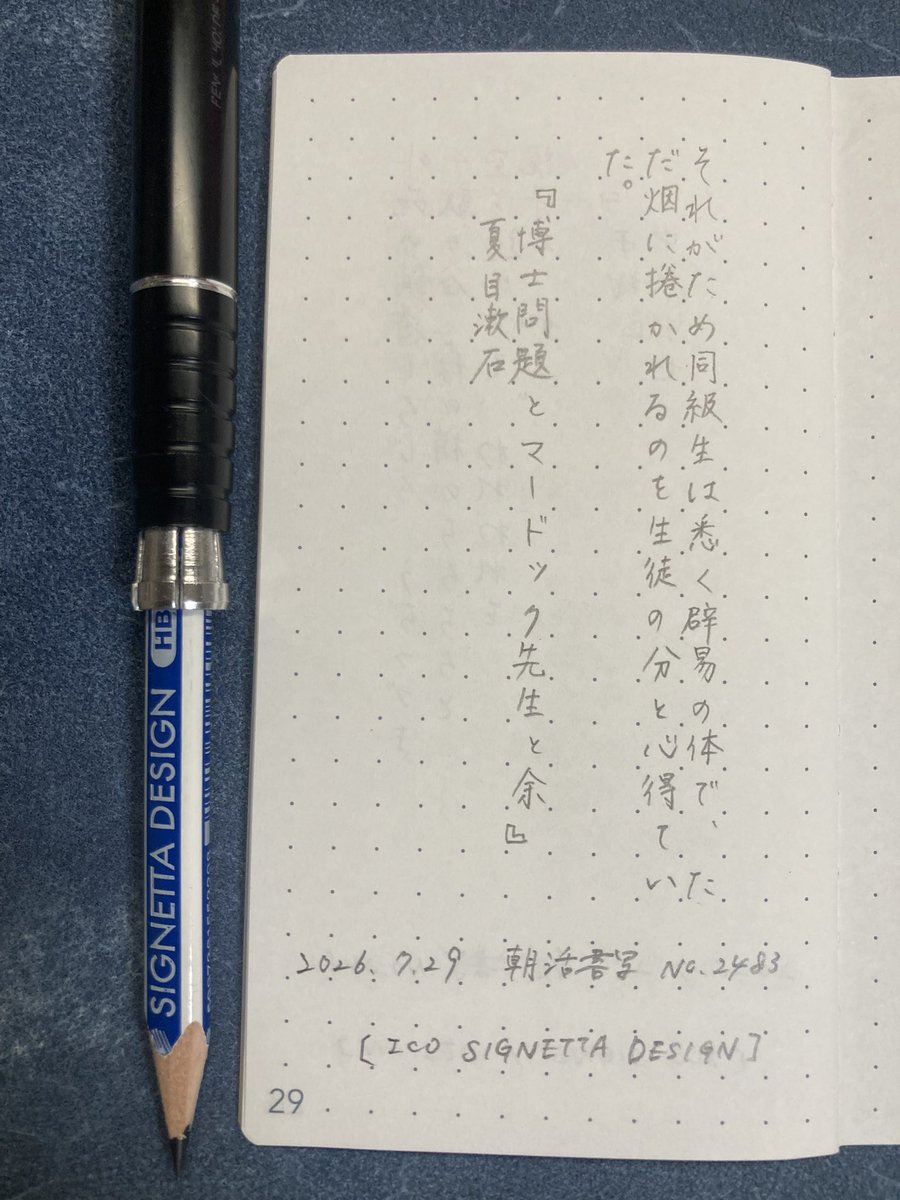 それがため同級生は悉く辟易の体で、た
だ烟に捲かれるのを生徒の分と心得てい
た。
『博士問題とマードック先生と余』
夏目漱石
2026.7.29 朝活書写 No.2483
[ICO SIGNETTA DESIGN]
29
SIGNETTA DESIGN HB